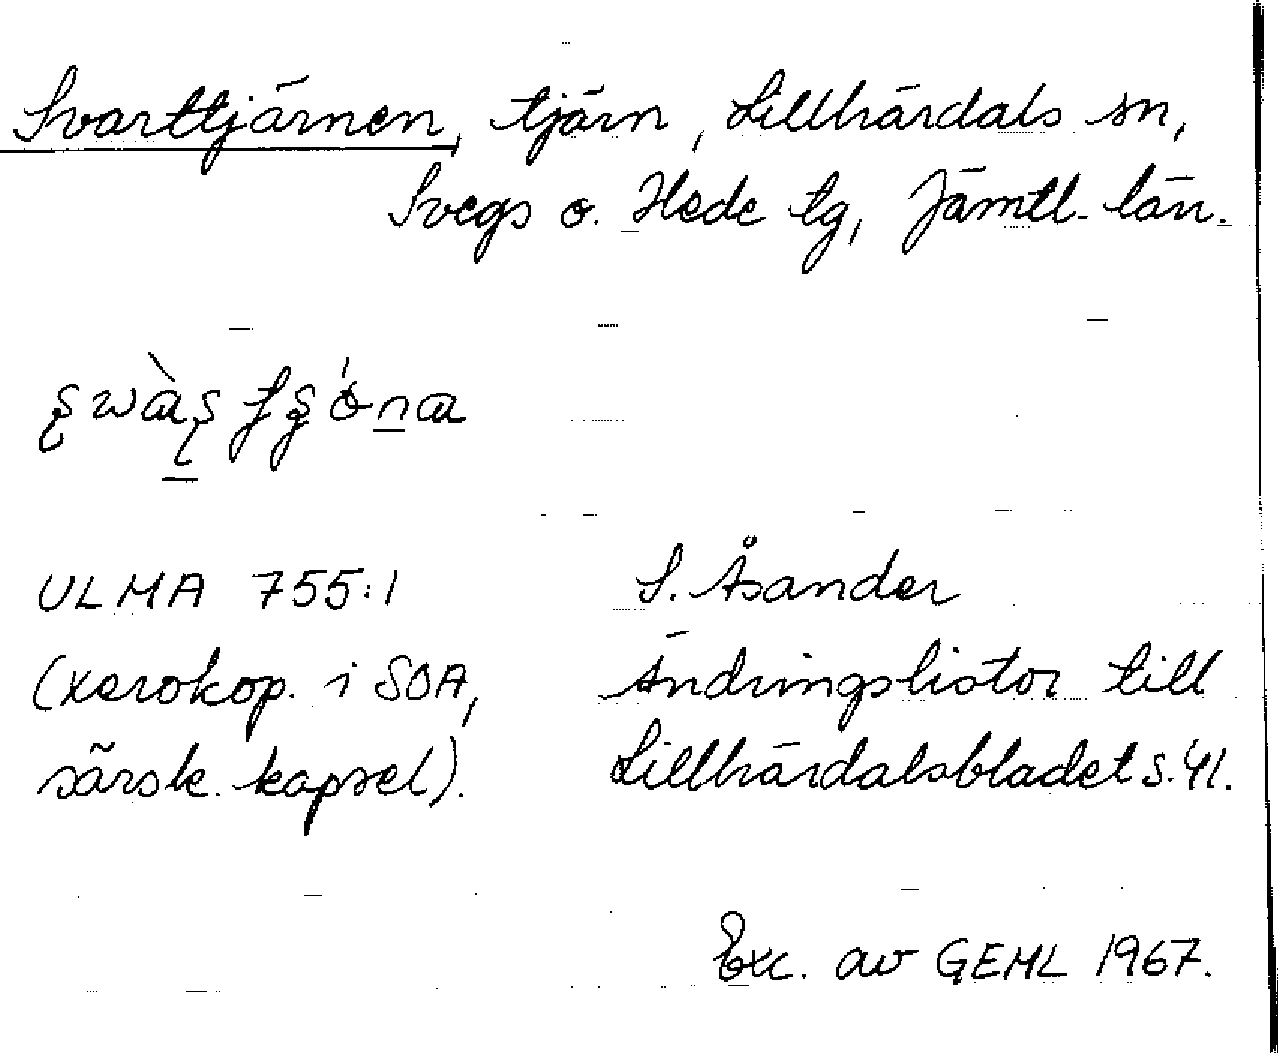 Svarttjärnen, tjärn, Lillhärdals sn,
Svegs o. Hede tg, Jämtl. län.
ULMA 755:1
(xerokop. i SOA,
särsk. kapsel).
S. Åsander
Ändringslistor till
Lillhärdalsbladet s. 41.
Exc. av GEML 1967.